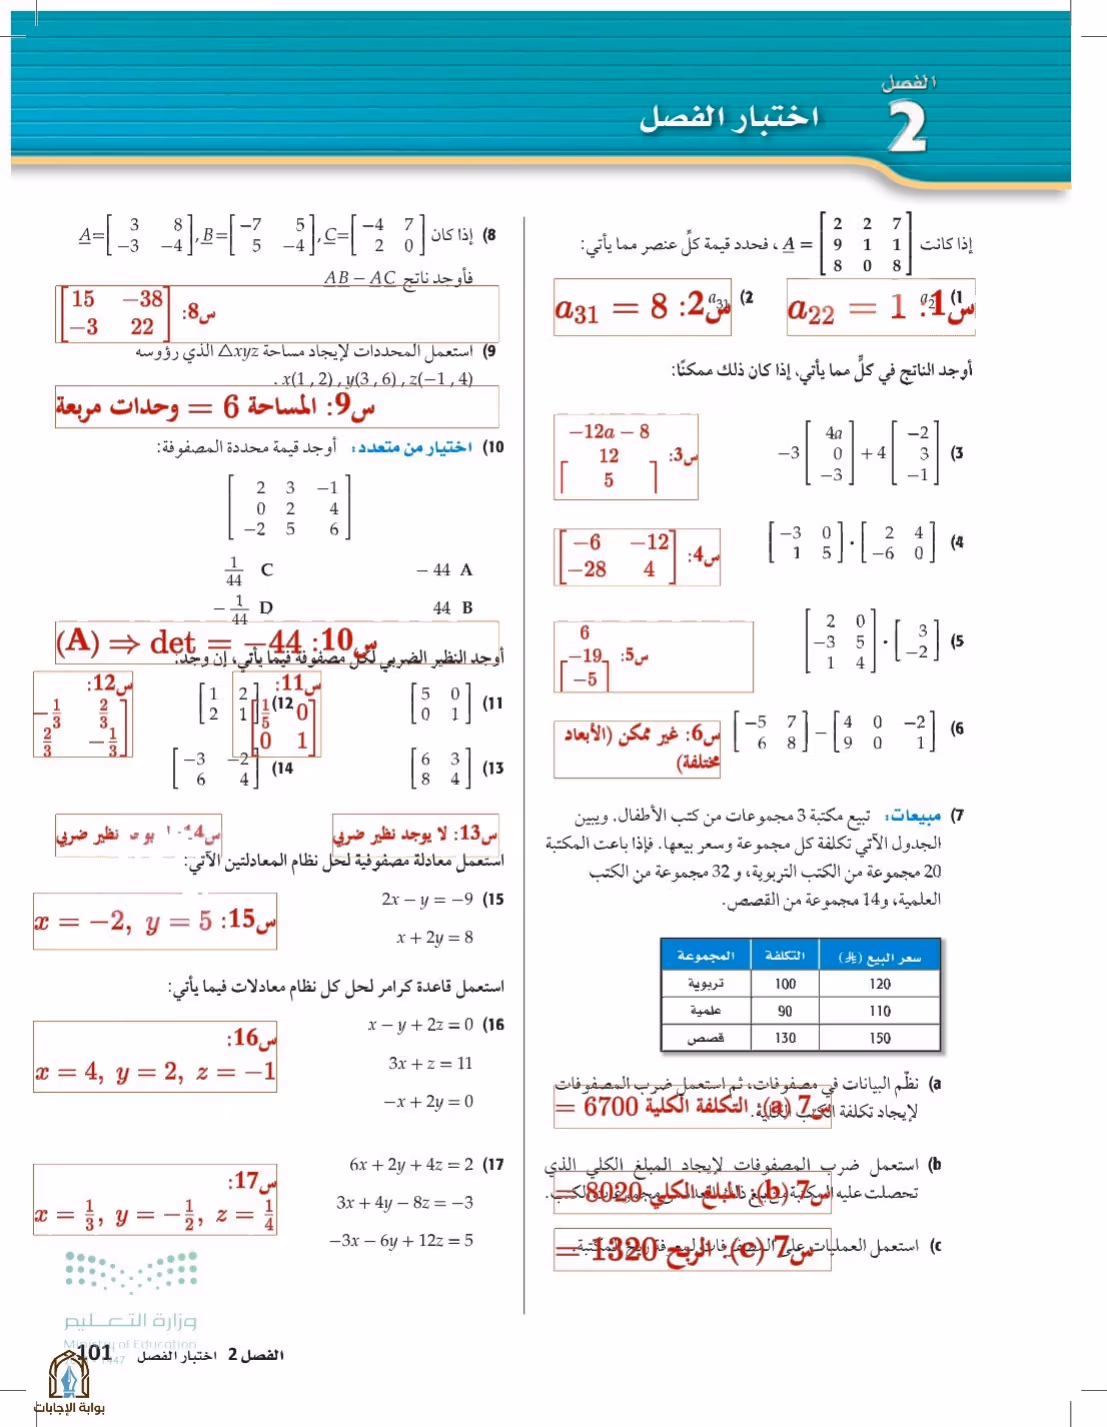 الفصل
2
اختبار الفصل
إذا كانت A = [2 2 7; 9 1 1; 8 0 8] ، فحدد قيمة كلِّ عنصر مما يأتي:
(1
س1: a22 = 1
(2 a31
س2: a31 = 8
أوجد الناتج في كلٍّ مما يأتي، إذا كان ذلك ممكنًا:
(3 −3 [4a; 0; −3] + 4 [−2; 3; −1]
س3: −12a − 8
12
5
(4 [−3 0; 1 5] · [2 4; −6 0]
س4: [−6 −12; −28 4]
(5 [2 0; −3 5; 1 4] · [3; −2]
س5: 6
−19
−5
(6 [−5 7; 6 8] − [4 0 −2; 9 0 1]
س6: غير ممكن (الأبعاد
مختلفة)
(7 مبيعات: تبيع مكتبة 3 مجموعات من كتب الأطفال. ويبين
الجدول الآتي تكلفة كل مجموعة وسعر بيعها. فإذا باعت المكتبة
20 مجموعة من الكتب التربوية، و 32 مجموعة من الكتب
العلمية، و14 مجموعة من القصص.
المجموعة التكلفة سعر البيع
تربوية 100 120
علمية 90 110
قصص 130 150
(a نظّم البيانات في مصفوفات، ثم استعمل ضرب المصفوفات
لإيجاد تكلفة الكتب الكلية.
س7 (a): التكلفة الكلية = 6700
(b استعمل ضرب المصفوفات لإيجاد المبلغ الكلي الذي
تحصلت عليه المكتبة
س7 (b): المبلغ الكلي = 8020
(c استعمل العمليات على المصفوفات لمعرفة ربح المكتبة.
س7 (c): الربح = 1320
(8 إذا كان A = [3 8; −3 −4] , B = [−7 5; 5 −4] , C = [−4 7; 2 0]
فأوجد ناتج AB − AC
س8: [15 −38; −3 22]
(9 استعمل المحددات لإيجاد مساحة △xyz الذي رؤوسه
x(1 , 2) , y(3 , 6) , z(−1 , 4) .
س9: المساحة = 6 وحدات مربعة
(10 اختيار من متعدد: أوجد قيمة محددة المصفوفة:
[2 3 −1; 0 2 4; −2 5 6]
−44 A 1/44 C
44 B −1/44 D
س10: det = −44 ⇒ (A)
أوجد النظير الضربي لكل مصفوفة فيما يأتي، إن وجد.
(11 [5 0; 0 1]
س11: [1/5 0; 0 1]
(12 [1 2; 2 1]
س12: [−1/3 2/3; 2/3 −1/3]
(13 [6 3; 8 4]
(14 [−3 −2; 6 4]
س13: لا يوجد نظير ضربي
نظير ضربي
استعمل معادلة مصفوفية لحل نظام المعادلتين الآتي:
(15 2x − y = −9
x + 2y = 8
س15: x = −2, y = 5
استعمل قاعدة كرامر لحل كل نظام معادلات فيما يأتي:
(16 x − y + 2z = 0
3x + z = 11
−x + 2y = 0
س16:
x = 4, y = 2, z = −1
(17 6x + 2y + 4z = 2
3x + 4y − 8z = −3
−3x − 6y + 12z = 5
س17:
x = 1/3, y = −1/2, z = 1/4
وزارة التعليم
Ministry of Education
1447
101 الفصل 2 اختبار الفصل
بوابة الإجابات